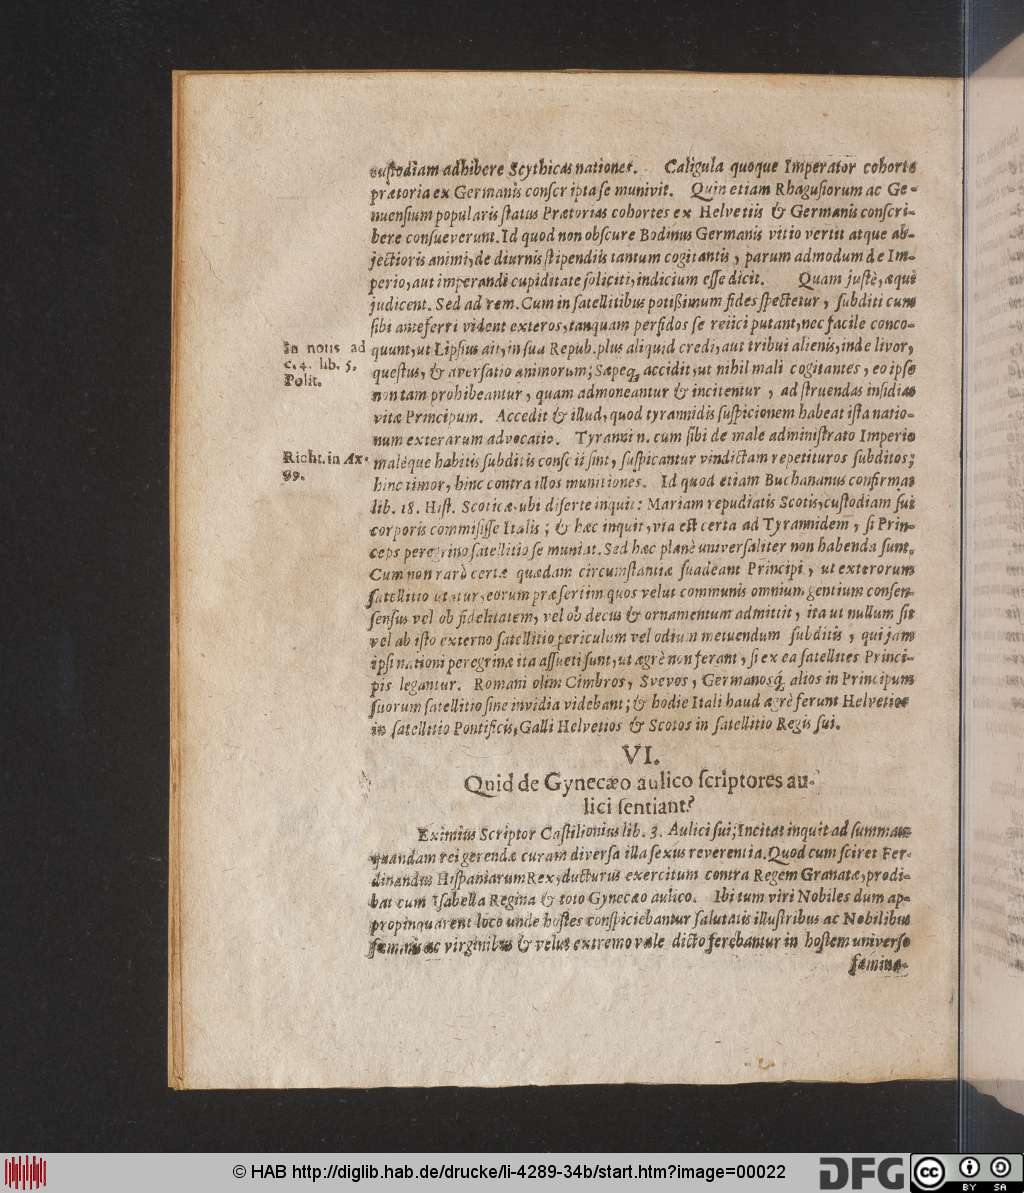 custodiam adhibere Scythicas nationes. Caligula quoque Imperator cohorte
prætoria ex Germanis conscripta se munivit. Quin etiam Rhagusiorum ac Ge-
nuensium popularis status Prætorias cohortes ex Helvetiis & Germanis conscri-
bere consueverunt. Id quod non obscure Bodinus Germanis vitio vertit atque ab-
jectioris animi, de diurnis stipendiis tantum cogitantis, parum admodum de Im-
perio, aut imperandi cupiditate soliciti, indicium esse dicit. Quam justè, æqui
judicent. Sed ad rem. Cum in satellitibus potißimum fides spectetur, subditi cum
sibi anteferri vident exteros, tanquam perfidos se reiici putant, nec facile conco-
In notis ad
c. 4. lib. 5.
Polit.
quunt, ut Lipsius ait, in sua Repub. plus aliquid credi, aut tribui alienis, inde livor,
questus, & aversatio animorum; Sæpeq; accidit, ut nihil mali cogitantes, eo ipso
non tam prohibeantur, quam admoneantur & incitentur, ad struendas insidias
vitæ Principum. Accedit & illud, quod tyrannidis suspicionem habeat ista natio-
num exterarum advocatio. Tyranni n. cum sibi de male administrato Imperio
Richt. in Ax.
99.
malèque habitis subditis conscii sint, suspicantur vindictam repetituros subditos;
hinc timor, hinc contra illos munitiones. Id quod etiam Buchananus confirmat
lib. 18. Hist. Scoticæ, ubi diserte inquit: Mariam repudiatis Scotis, custodiam sui
corporis commisisse Italis; & hæc inquit, via est certa ad Tyrannidem, si Prin-
ceps peregrino satellitio se muniat. Sed hæc planè universaliter non habenda sunt.
Cum non rarò certæ quædam circumstantiæ suadeant Principi, ut exterorum
satellitio utatur, eorum præsertim quos velut communis omnium gentium consen-
sensus vel ob fidelitatem, vel ob decus & ornamentum admittit, ita ut nullum sit
vel ab isto externo satellitio periculum vel odium metuendum subditis, qui jam
ipsi nationi peregrinæ ita assueti sunt, ut ægrè non ferant, si ex ea satellites Princi-
pis legantur. Romani olim Cimbros, Svevos, Germanosq; alios in Principum
suorum satellitio sine invidia videbant; & hodie Itali haud ægrè ferunt Helvetios
in satellitio Pontificis, Galli Helvetios & Scotos in satellitio Regis sui.
VI.
Quid de Gynecæo aulico scriptores au-
lici sentiant?
Eximius Scriptor Castilionius lib. 3. Aulici sui; Incitat inquit ad summam
quandam rei gerendæ curam diversa illa sexus reverentia. Quod cum sciret Fer-
dinandus Hispaniarum Rex, ducturus exercitum contra Regem Granatæ, prodi-
bat cum Isabella Regina & toto Gynecæo aulico. Ibi tum viri Nobiles dum ap-
propinquarent loco unde hostes conspiciebantur salutatis illustribus ac Nobilibus
fæminis ac virginibus & velut extremo vale dicto ferebantur in hostem universo
fæmina-
© HAB http://diglib.hab.de/drucke/li-4289-34b/start.htm?image=00022
DFG
cc
BY SA